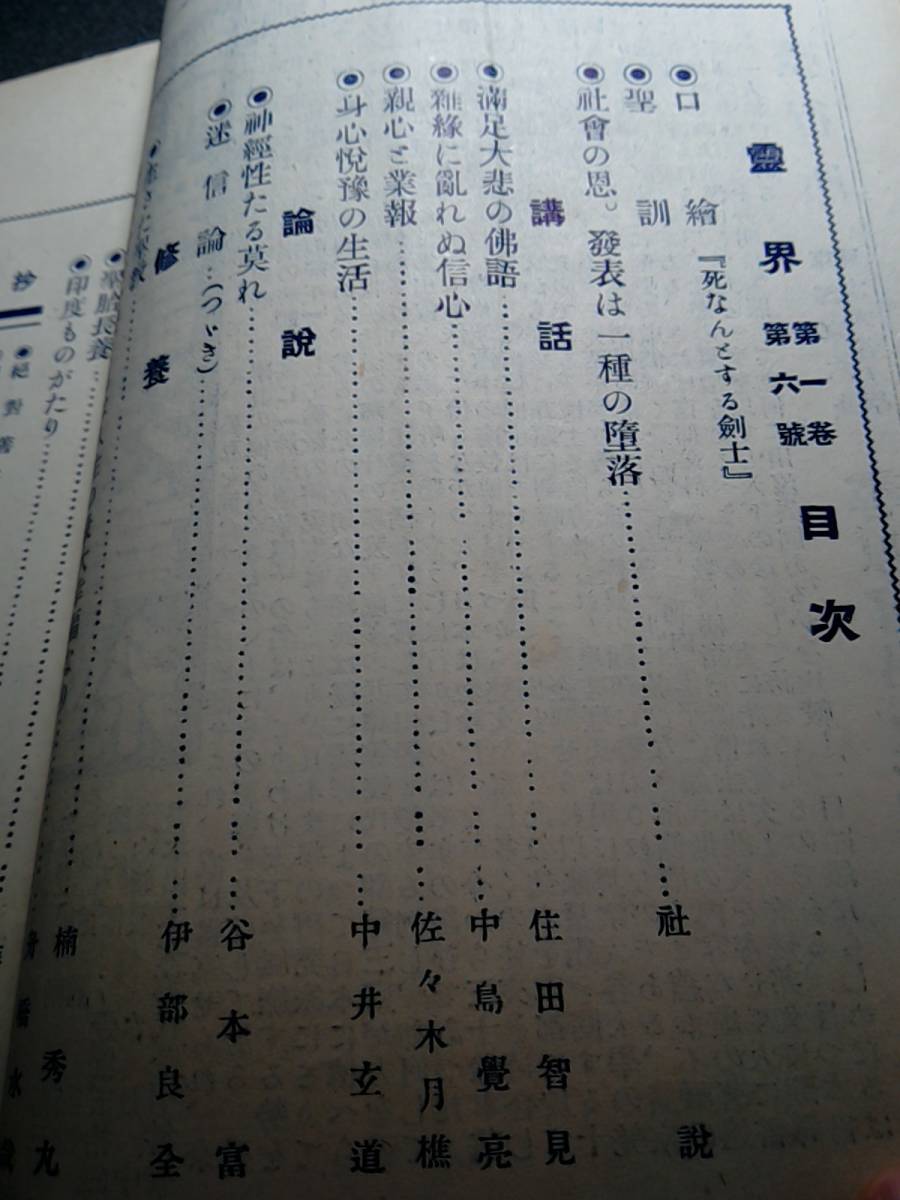 靈界 第一卷 第六號 目次
◉口繪『死なんとする劍士』
◉聖訓
◉社會の恩。發表は一種の墮落……社說
講話
◉滿足大悲の佛語……住田智見
◉雜緣に亂れぬ信心……中島覺亮
◉親心と業報……佐々木月樵
◉身心悅豫の生活……中井玄道
論說
◉神經性たる莫れ……谷本富
◉迷信論…(つゞき)……伊部良全
修養
◉聖胎長養
◉印度ものがたり……楠秀丸
抄